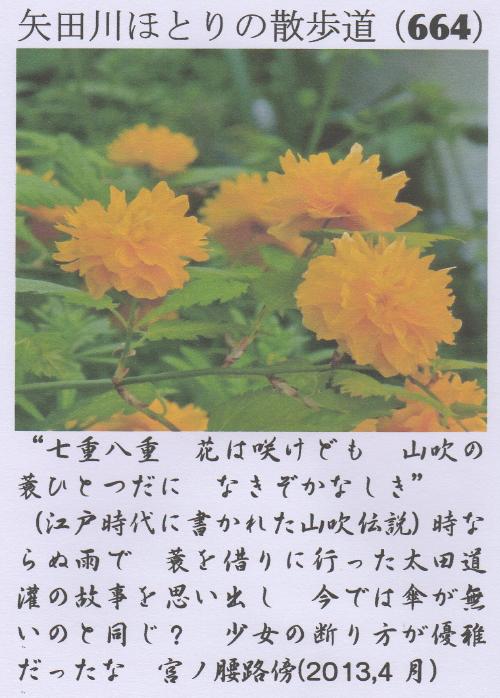 矢田川ほとりの散歩道（664）
“七重八重　花は咲けども　山吹の
蓑ひとつだに　なきぞかなしき”
（江戸時代に書かれた山吹伝説）時な
らぬ雨で　蓑を借りに行った太田道
灌の故事を思い出し　今では傘が無
いのと同じ？　少女の断り方が優雅
だったな　宮ノ腰路傍(2013,4 月)